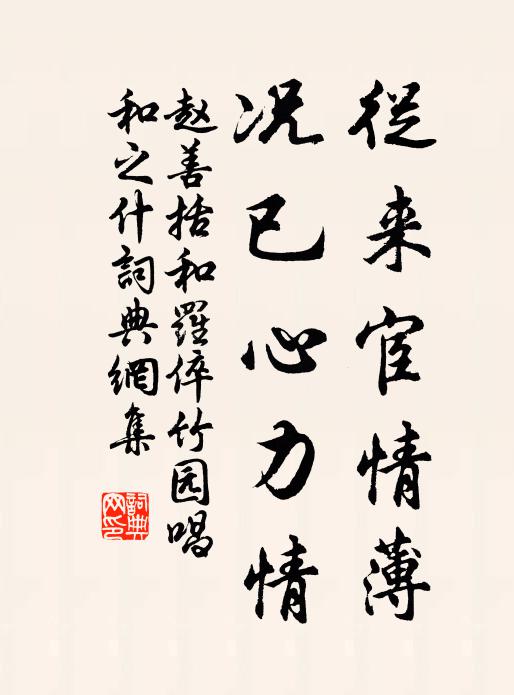 從来宦情薄
况已心力情
赵善括和羅倅竹园唱
和之什詞典網集
詞典网印